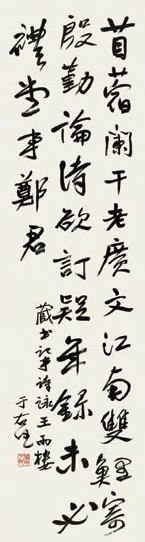 苜蓿闌干老廣文江南雙鯉寄
殷勤論詩欲訂疑年錄未必
禮堂事鄭君
藏書記事詩詠王雨樓
于右任